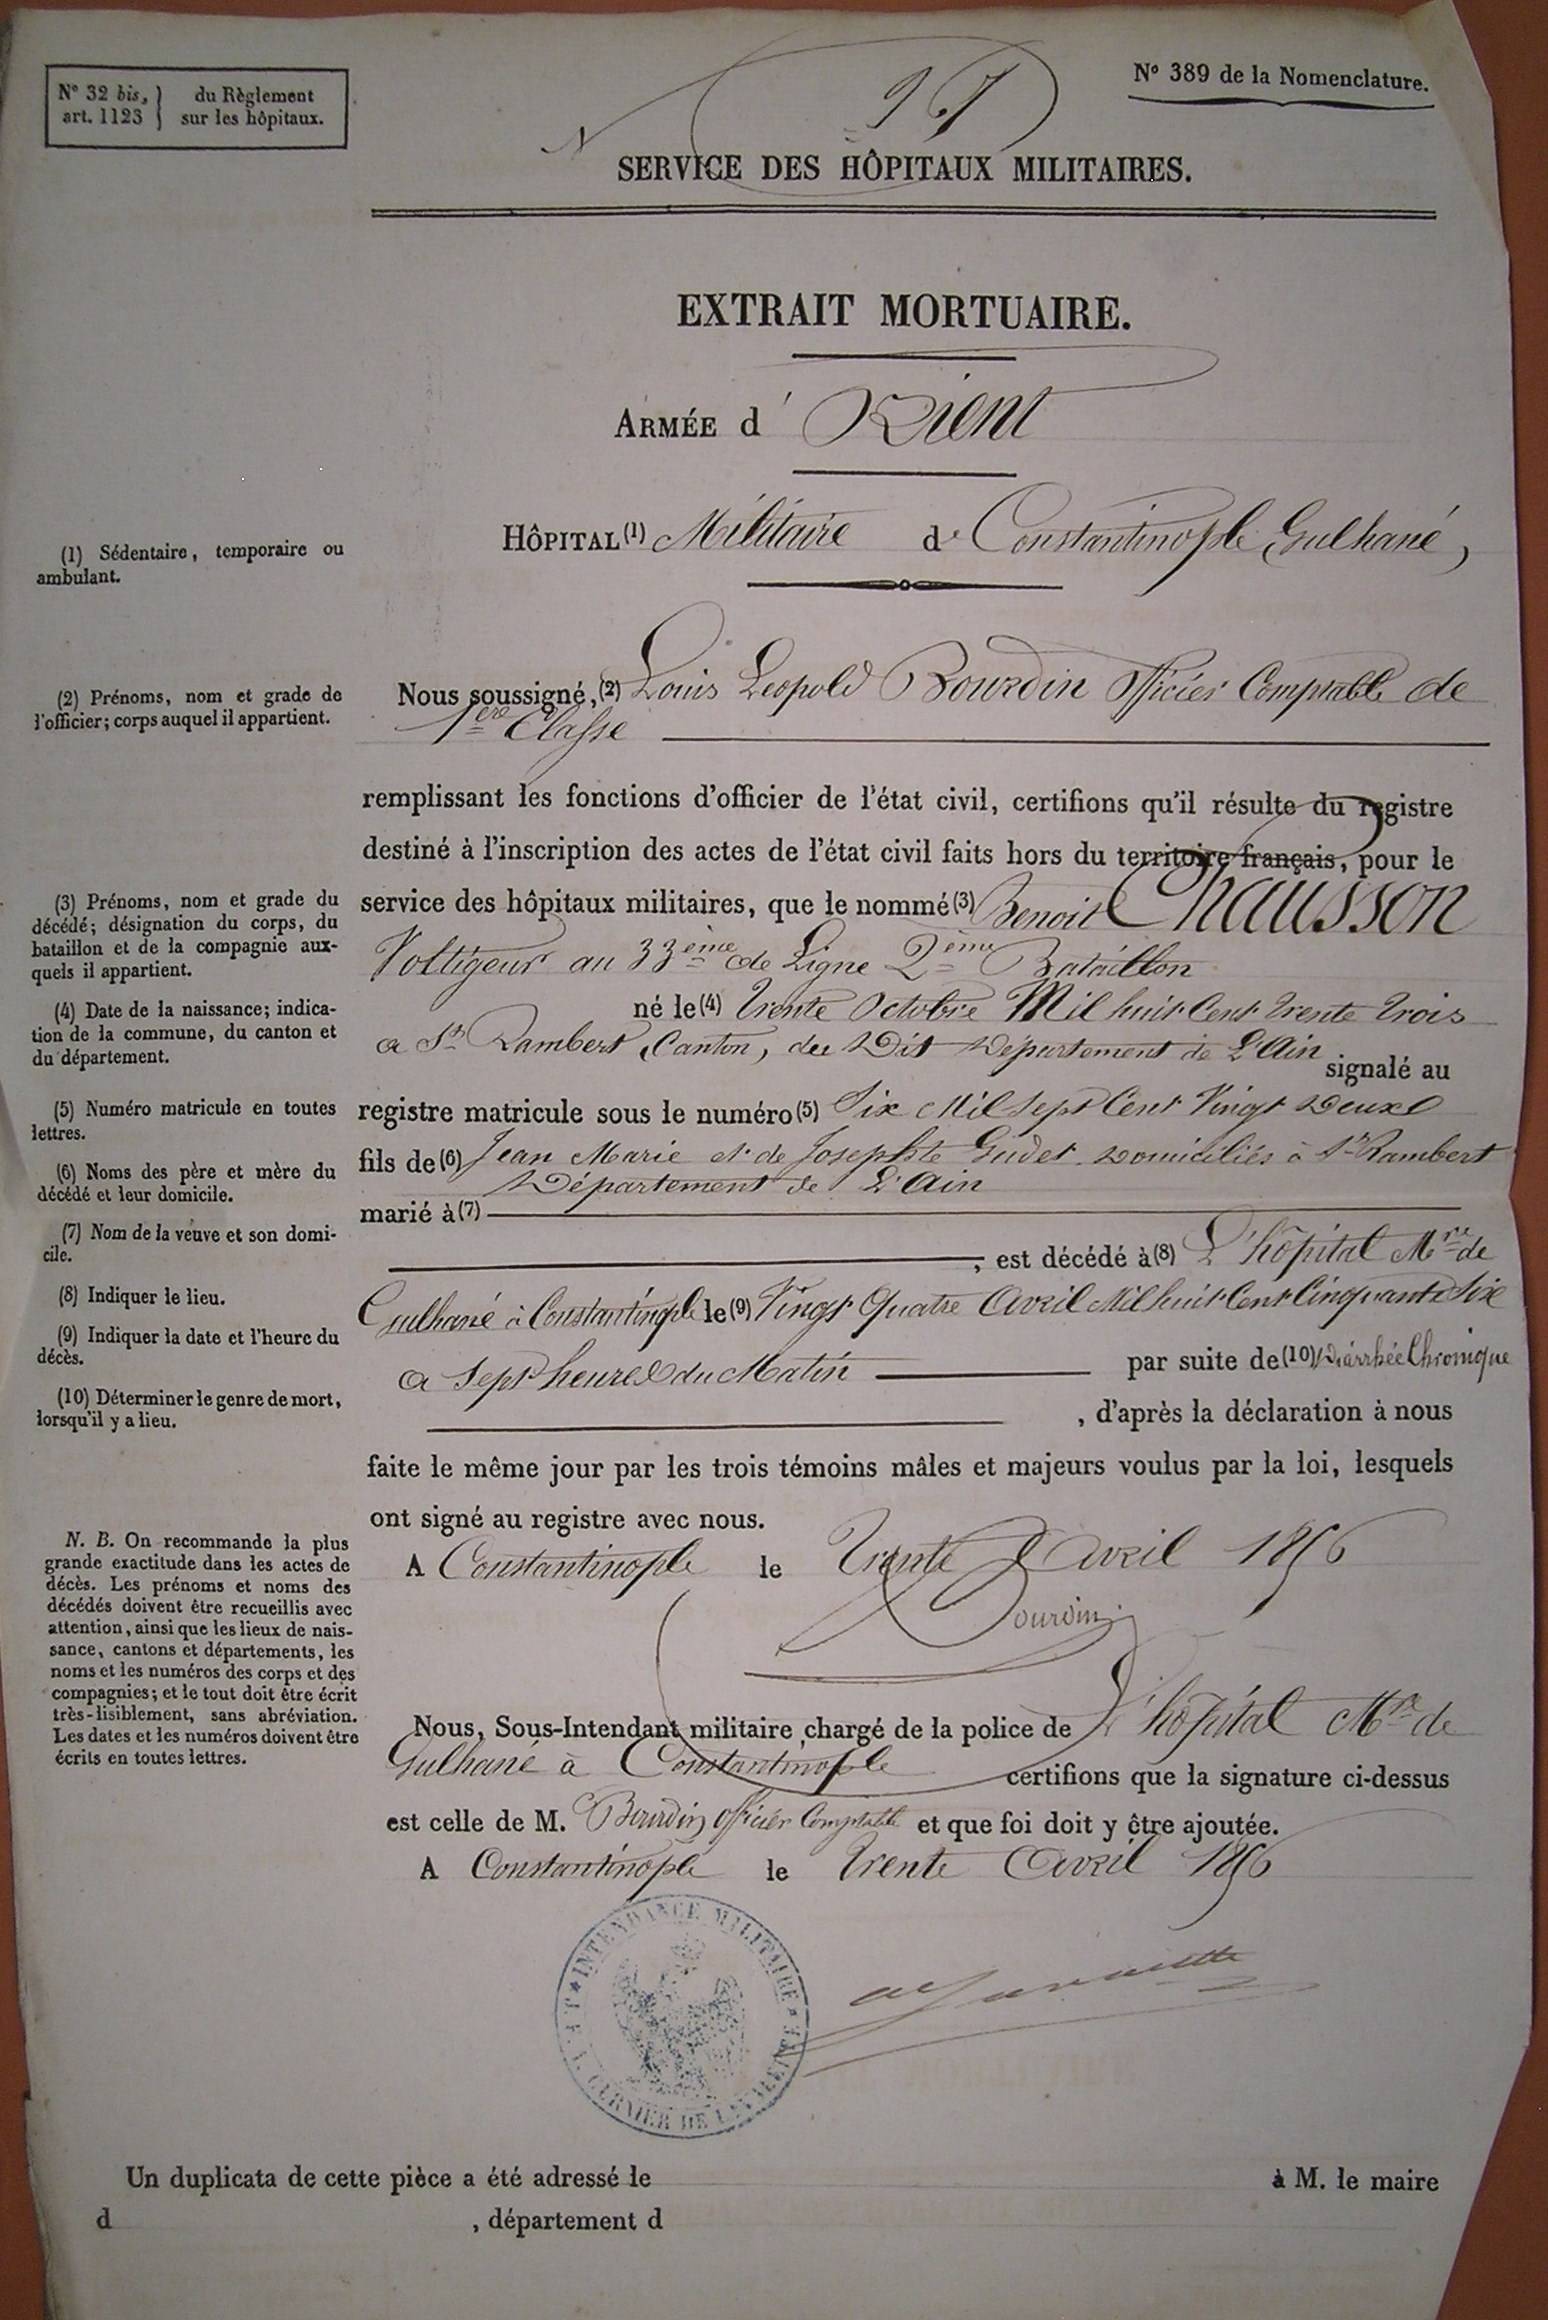 N° 32 bis, art. 1123 } du Règlement sur les hôpitaux.
N° 389 de la Nomenclature.
SERVICE DES HÔPITAUX MILITAIRES.
EXTRAIT MORTUAIRE.
ARMÉE d'Orient
HÔPITAL (1) Militaire de Constantinople (Gulhané)
(1) Sédentaire, temporaire ou
ambulant.
Nous soussigné, (2) Louis Leopold Bourdin Officier Comptable de
1ère Classe
(2) Prénoms, nom et grade de
l'officier; corps auquel il appartient.
remplissant les fonctions d'officier de l'état civil, certifions qu'il résulte du registre
destiné à l'inscription des actes de l'état civil faits hors du territoire français, pour le
service des hôpitaux militaires, que le nommé (3) Benoit Chausson
Voltigeur au 33ème de Ligne 2ème Bataillon
né le (4) Trente Octobre Mil huit Cent trente trois
a St Rambert, Canton, du Dit Département de L'Ain
signalé au
registre matricule sous le numéro (5) Six Mil Sept Cent Vingt Deux
fils de (6) Jean Marie et de Josephte Gudet Domiciliés à St Rambert
Département de L'Ain
marié à (7)
, est décédé à (8) L'hôpital Mre de
Gulhané à Constantinople le (9) Vingt Quatre Avril Mil huit Cent Cinquante Six
a Sept heures du Matin par suite de (10) Diarrhée Chronique
, d'après la déclaration à nous
faite le même jour par les trois témoins mâles et majeurs voulus par la loi, lesquels
ont signé au registre avec nous.
A Constantinople le Trente Avril 1856
Bourdin
(3) Prénoms, nom et grade du
décédé; désignation du corps, du
bataillon et de la compagnie aux-
quels il appartient.
(4) Date de la naissance; indica-
tion de la commune, du canton et
du département.
(5) Numéro matricule en toutes
lettres.
(6) Noms des père et mère du
décédé et leur domicile.
(7) Nom de la veuve et son domi-
cile.
(8) Indiquer le lieu.
(9) Indiquer la date et l'heure du
décès.
(10) Déterminer le genre de mort,
lorsqu'il y a lieu.
N. B. On recommande la plus
grande exactitude dans les actes de
décès. Les prénoms et noms des
décédés doivent être recueillis avec
attention, ainsi que les lieux de nais-
sance, cantons et départements, les
noms et les numéros des corps et des
compagnies; et le tout doit être écrit
très-lisiblement, sans abréviation.
Les dates et les numéros doivent être
écrits en toutes lettres.
Nous, Sous-Intendant militaire chargé de la police de L'hôpital Mre de
Gulhané à Constantinople certifions que la signature ci-dessus
est celle de M. Bourdin officier Comptable et que foi doit y être ajoutée.
A Constantinople le Trente Avril 1856
INTENDANCE MILITAIRE
Un duplicata de cette pièce a été adressé le à M. le maire
d , département d